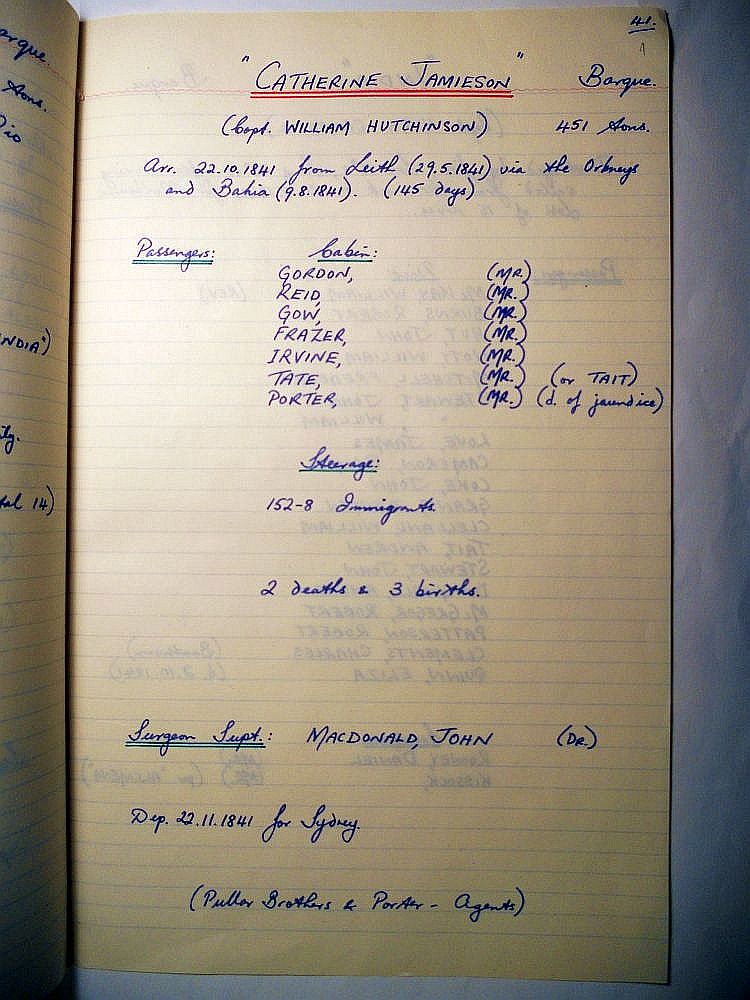 41.
"CATHERINE JAMIESON" Barque.
(Capt. WILLIAM HUTCHINSON) 451 tons.
Arr. 22.10.1841 from Leith (29.5.1841) via the Orkneys
and Bahia (9.8.1841). (145 days)
Passengers: Cabin:
GORDON, (MR.)
REID, (MR.)
GOW, (MR.)
FRAZER, (MR.)
IRVINE, (MR.)
TATE, (MR.) (or TAIT)
PORTER, (MR.) (d. of jaundice)
Steerage:
152-8 Immigrants.
2 deaths & 3 births.
Surgeon Supt.: MACDONALD, JOHN (DR.)
Dep. 22.11.1841 for Sydney.
(Pullar Brothers & Porter - Agents)
arque.
tons.
NDIA")
tal 14)